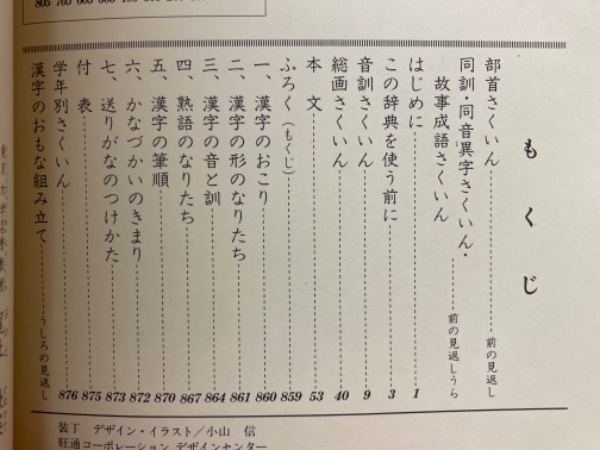 もくじ
部首さくいん 前の見返し
同訓・同音異字さくいん・
故事成語さくいん 前の見返しうら
はじめに 1
この辞典を使う前に 3
音訓さくいん 9
総画さくいん 40
本文 53
ふろく（もくじ） 859
一、漢字のおこり 860
二、漢字の形のなりたち 861
三、漢字の音と訓 864
四、熟語のなりたち 867
五、漢字の筆順 870
六、かなづかいのきまり 872
七、送りがなのつけかた 873
付表 875
学年別さくいん 876
漢字のおもな組み立て うしろの見返し
装丁 デザイン・イラスト／小山 信
旺通コーポレーション デザインセンター